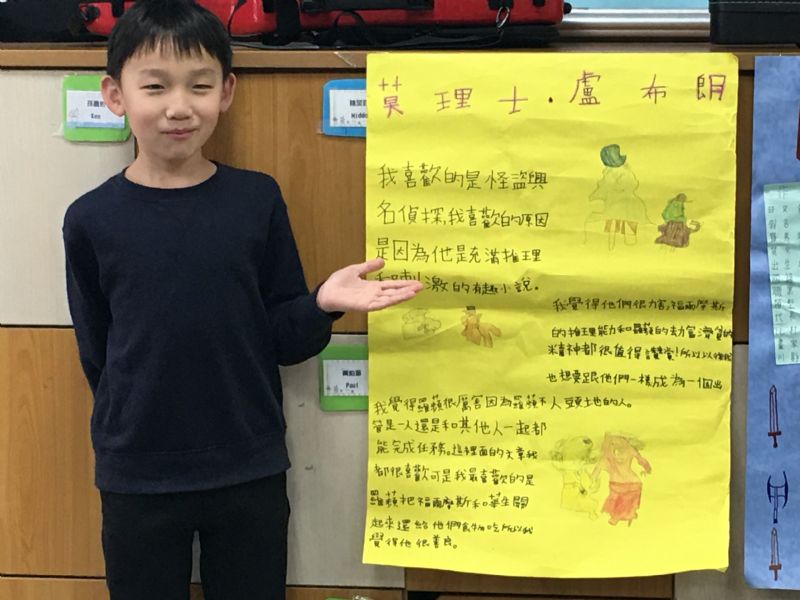 莫理士·盧布朗
我喜歡的是怪盜與
名偵探,我喜歡的原因
是因為他是充滿推理
和刺激的有趣小說.
我覺得他們很力害,福爾摩斯
的推理能力和羅蘋的劫富濟貧的
精神都很值得讚賞!所以以後我
也想要跟他們一樣成為一個出
人頭土也的人。
我覺得羅蘋很厲害因為羅蘋不
管是一人還是和其他人一起都
能完成任務。這裡面的文章我
都很喜歡可是我最喜歡的是
羅蘋把福爾摩斯和華生關
起來還給他們食物吃所以我
覺得他很善良。
Ken
Paul